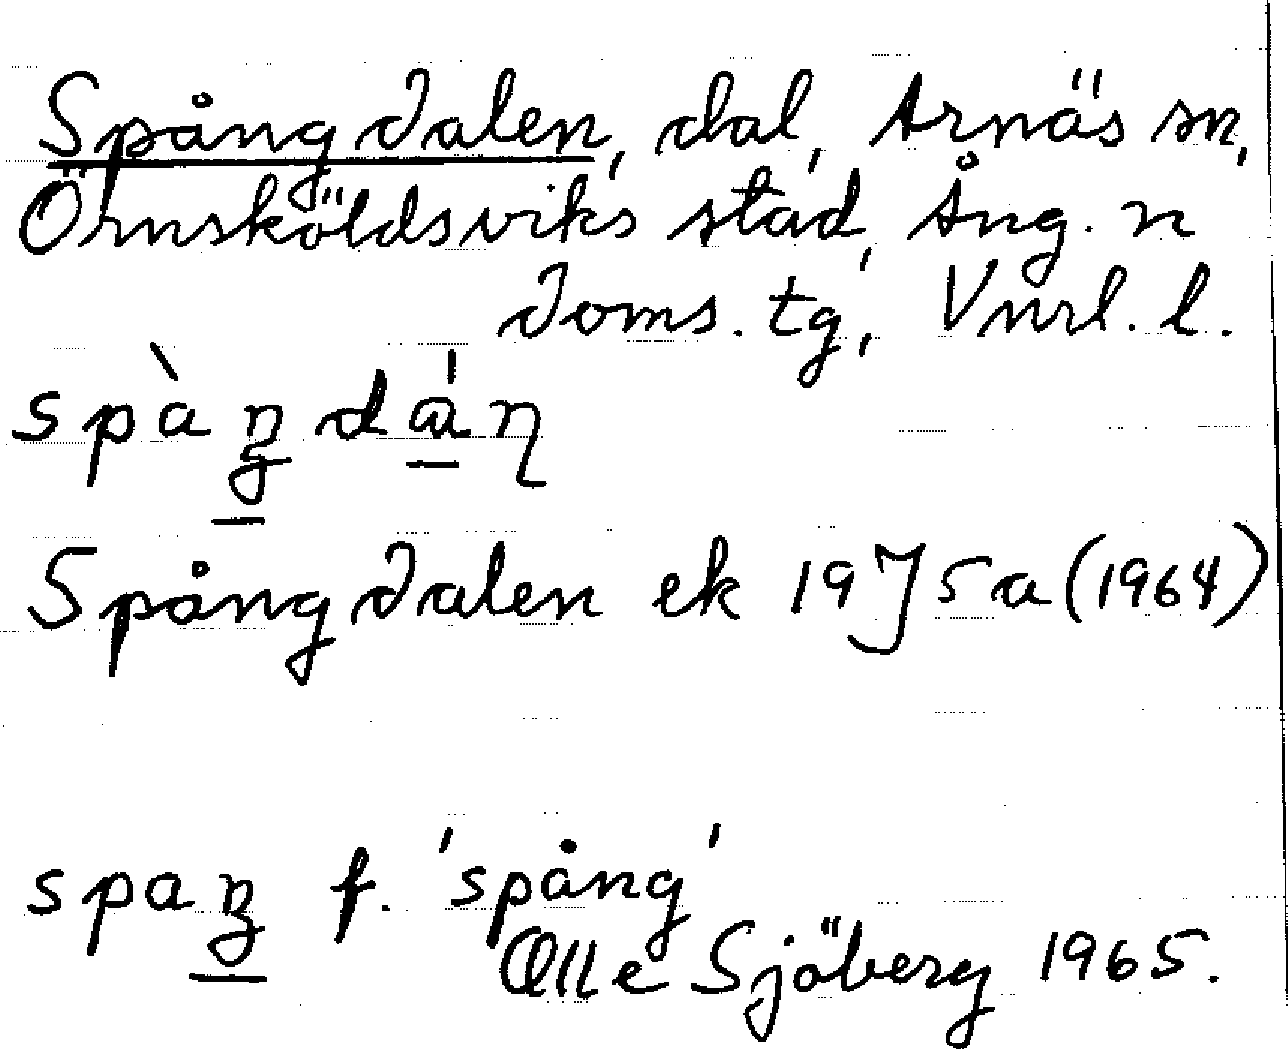 Spångdalen, dal, Arnäs sn,
Örnsköldsviks stad, Ång. n
Doms. tg, Vnrl. l.
spàŋdáɳ
Spångdalen ek 19J5a (1964)
spaŋ f. 'spång'
Olle Sjöberg 1965.